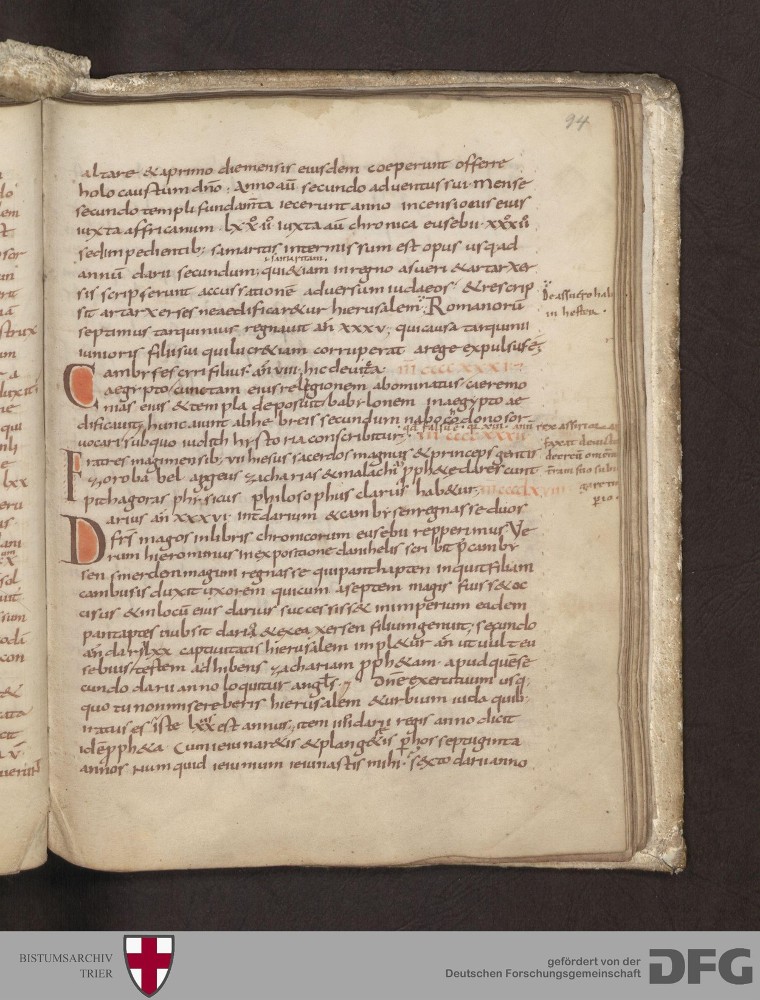 94
altare & aprimo diemensis eiusdem coeperunt offerre
holocaustum dño; Anno aũ secundo aduentus sui mense
secundo templi fundam̃ta iecerunt anno incensionis eius
iuxta affricanum lxxii iuxta aũ chronica eusebii xxxii
sed inpedientib; samaritis intermissum est opus usq; ad
annũ darii secundum; qui &iam in regno asueri & artarxer
sis scripserunt accussationẽ aduersum iudaeos & rescrip
sit artarxerses ne aedificar&ur hierusalem; Romanorũ
septimus tarquinius regnauit añ xxxv; qui causa tarquinii
iunioris filii sui qui lucr&iam corruperat arege expulsus e;
Cambyses cyri filius añ viii; hic deuicta
aegypto cunctam eius religionem abominatus caeremo
nias eius & templa deposuit babylonem in aegypto ae
dificauit; hunc aiunt abhebreis secundum nabocodonosor
uocari sub quo iudith hystoria conscribitur;
Fratres magi mensib; vii hiesus sacerdos magnus & princeps gentis
zorobabel aggeus zacharias & malachi pph&e clarescunt
pithagoras physicus philosophus clarus hab&ur;
Darius añ xxxvi int̃ darium & cambysen regnasse duos
fr̃s magos inlibris chronicorum eusebii repperimus Ve
rum hieronimus inexpositione danihelis scribit p̃ camby
sen smerden magum regnasse qui panthapten inquit filiam
cambisis duxit uxorem qui cum a septem magis fuiss& oc
cisus & inlocũ eius darius successiss& in imperium eadem
pantaptes nubsit dario & ex ea xersen filium genuit; secundo
añ darii lxx captiuitatis hierusalem impl&ur añ ut uult eu
sebius testem adhibens zachariam pph&am apud quẽ se
cundo darii anno loquitur angl̃s dñe exercituum usq;
quo tu non misereberis hierusalem & urbium iuda quib;
iratus es iste lxx est annus; item iiii darii regis anno dicit
idẽ pph&a Cum ieiunar&is & plangeretis p̃ hos septuaginta
annos Numquid ieiunium ieiunastis mihi; sexto darii anno
De assuero hab&
in hester.
BISTUMSARCHIV
TRIER
gefördert von der
Deutschen Forschungsgemeinschaft
DFG